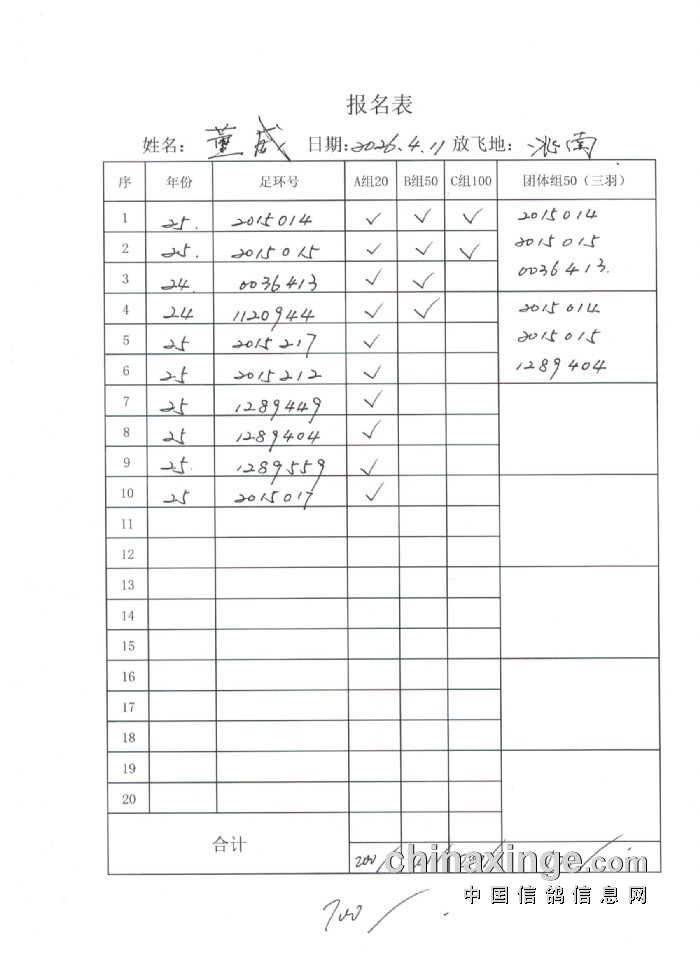 报名表
姓名: 董威 日期: 2026.4.11 放飞地: 洮南
序 年份 足环号 A组20 B组50 C组100 团体组50（三羽）
1 25. 2015014 ✓ ✓ ✓ 2015014
2 25. 2015015 ✓ ✓ ✓ 2015015
0036413.
3 24. 0036413 ✓ ✓
4 24 1120944 ✓ ✓ 2015014
5 25 2015217 ✓ 2015015
6 25 2015212 ✓ 1289404
7 25 1289449 ✓
8 25 1289404 ✓
9 25. 1289559 ✓
10 25 2015017 ✓
11
12
13
14
15
16
17
18
19
20
合计 200/
chinaxinge.com
中国信鸽信息网
700/